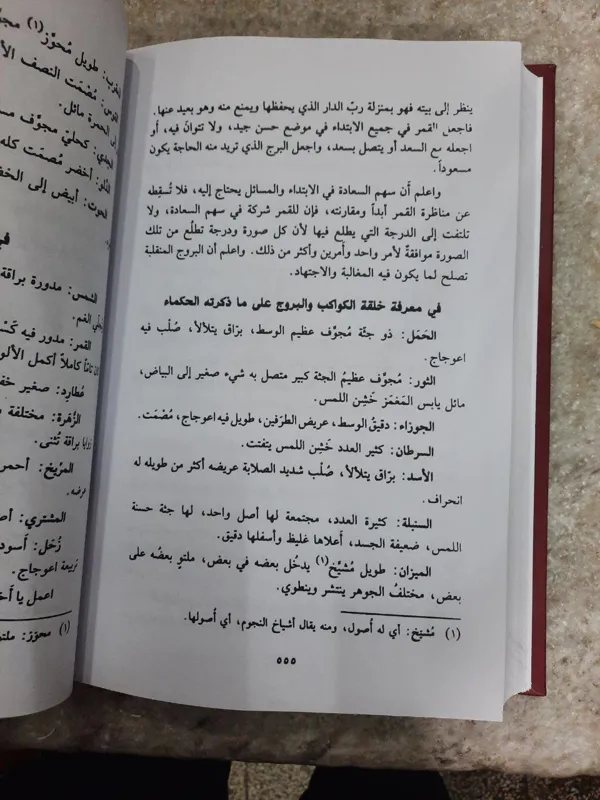 ينظر إلى بيته فهو بمنزلة ربّ الدار الذي يحفظها ويمنع منه وهو بعيد عنها.
فاجعل القمر في جميع الابتداء في موضع حسن جيد، ولا تتوانَ فيه، أو
اجعله مع السعد أو يتصل بسعد، واجعل البرج الذي تريد منه الحاجة يكون
مسعوداً.
واعلم أن سهم السعادة في الابتداء والمسائل يحتاج إليه، فلا تُسقِطه
عن مناظرة القمر أبداً ومقارنته، فإن للقمر شركة في سهم السعادة، ولا
تلتفت إلى الدرجة التي يطلع فيها لأن كل صورة ودرجة تطلُع من تلك
الصورة موافقةٌ لأمر واحد وأمرين وأكثر من ذلك. واعلم أن البروج المنقلبة
تصلح لما يكون فيه المغالبة والاجتهاد.
في معرفة خلقة الكواكب والبروج على ما ذكرته الحكماء
الحَمَل: ذو جثّة مُجوَّف عظيم الوسط، برّاق يتلألأ، صُلْب فيه
اعوجاج.
الثور: مُجوَّف عظيمُ الجثة كبير متصل به شيء صغير إلى البياض،
مائل يابس المَغمَز خَشِن اللمس.
الجوزاء: دقيقُ الوسط، عريض الطرَفين، طويل فيه اعوجاج، مُصْمَت.
السرطان: كثير العدد خَشِن اللمس يتفتت.
الأسد: برّاق يتلألأ، صُلْب شديد الصلابة عريضه أكثر من طويله له
انحراف.
السنبلة: كثيرة العدد، مجتمعة لها أصل واحد، لها جثة حسنة
اللمس، ضعيفة الجسد، أعلاها غليظ وأسفلها دقيق.
الميزان: طويل مُشيَّخ(١) يدخُل بعضه في بعض، ملتوٍ بعضُه على
بعض، مختلفُ الجوهر ينتشر وينطوي.
(١) مُشيّخ: أي له أصول، ومنه يقال أشياخ النجوم، أي أصولها.
٥٥٥
طويل مُحوَّز(١)
مُصْمَت النصف
الحمرة مائل.
كحليّ مجوَّف
أخضر مُصْمَت كله
الحوت: أبيض إلى
في
الشمس: مدورة براقة
الغم.
القمر: مدور فيه
كاملاً أكمل
عُطارِد: صغير
الزُّهَرة: مختلفة
براقة تُثنى.
المرّيخ: أحمر
عرضه.
المشتري:
زُحَل: أسود
اعوجاج.
اعمل يا
(١) محوّز: